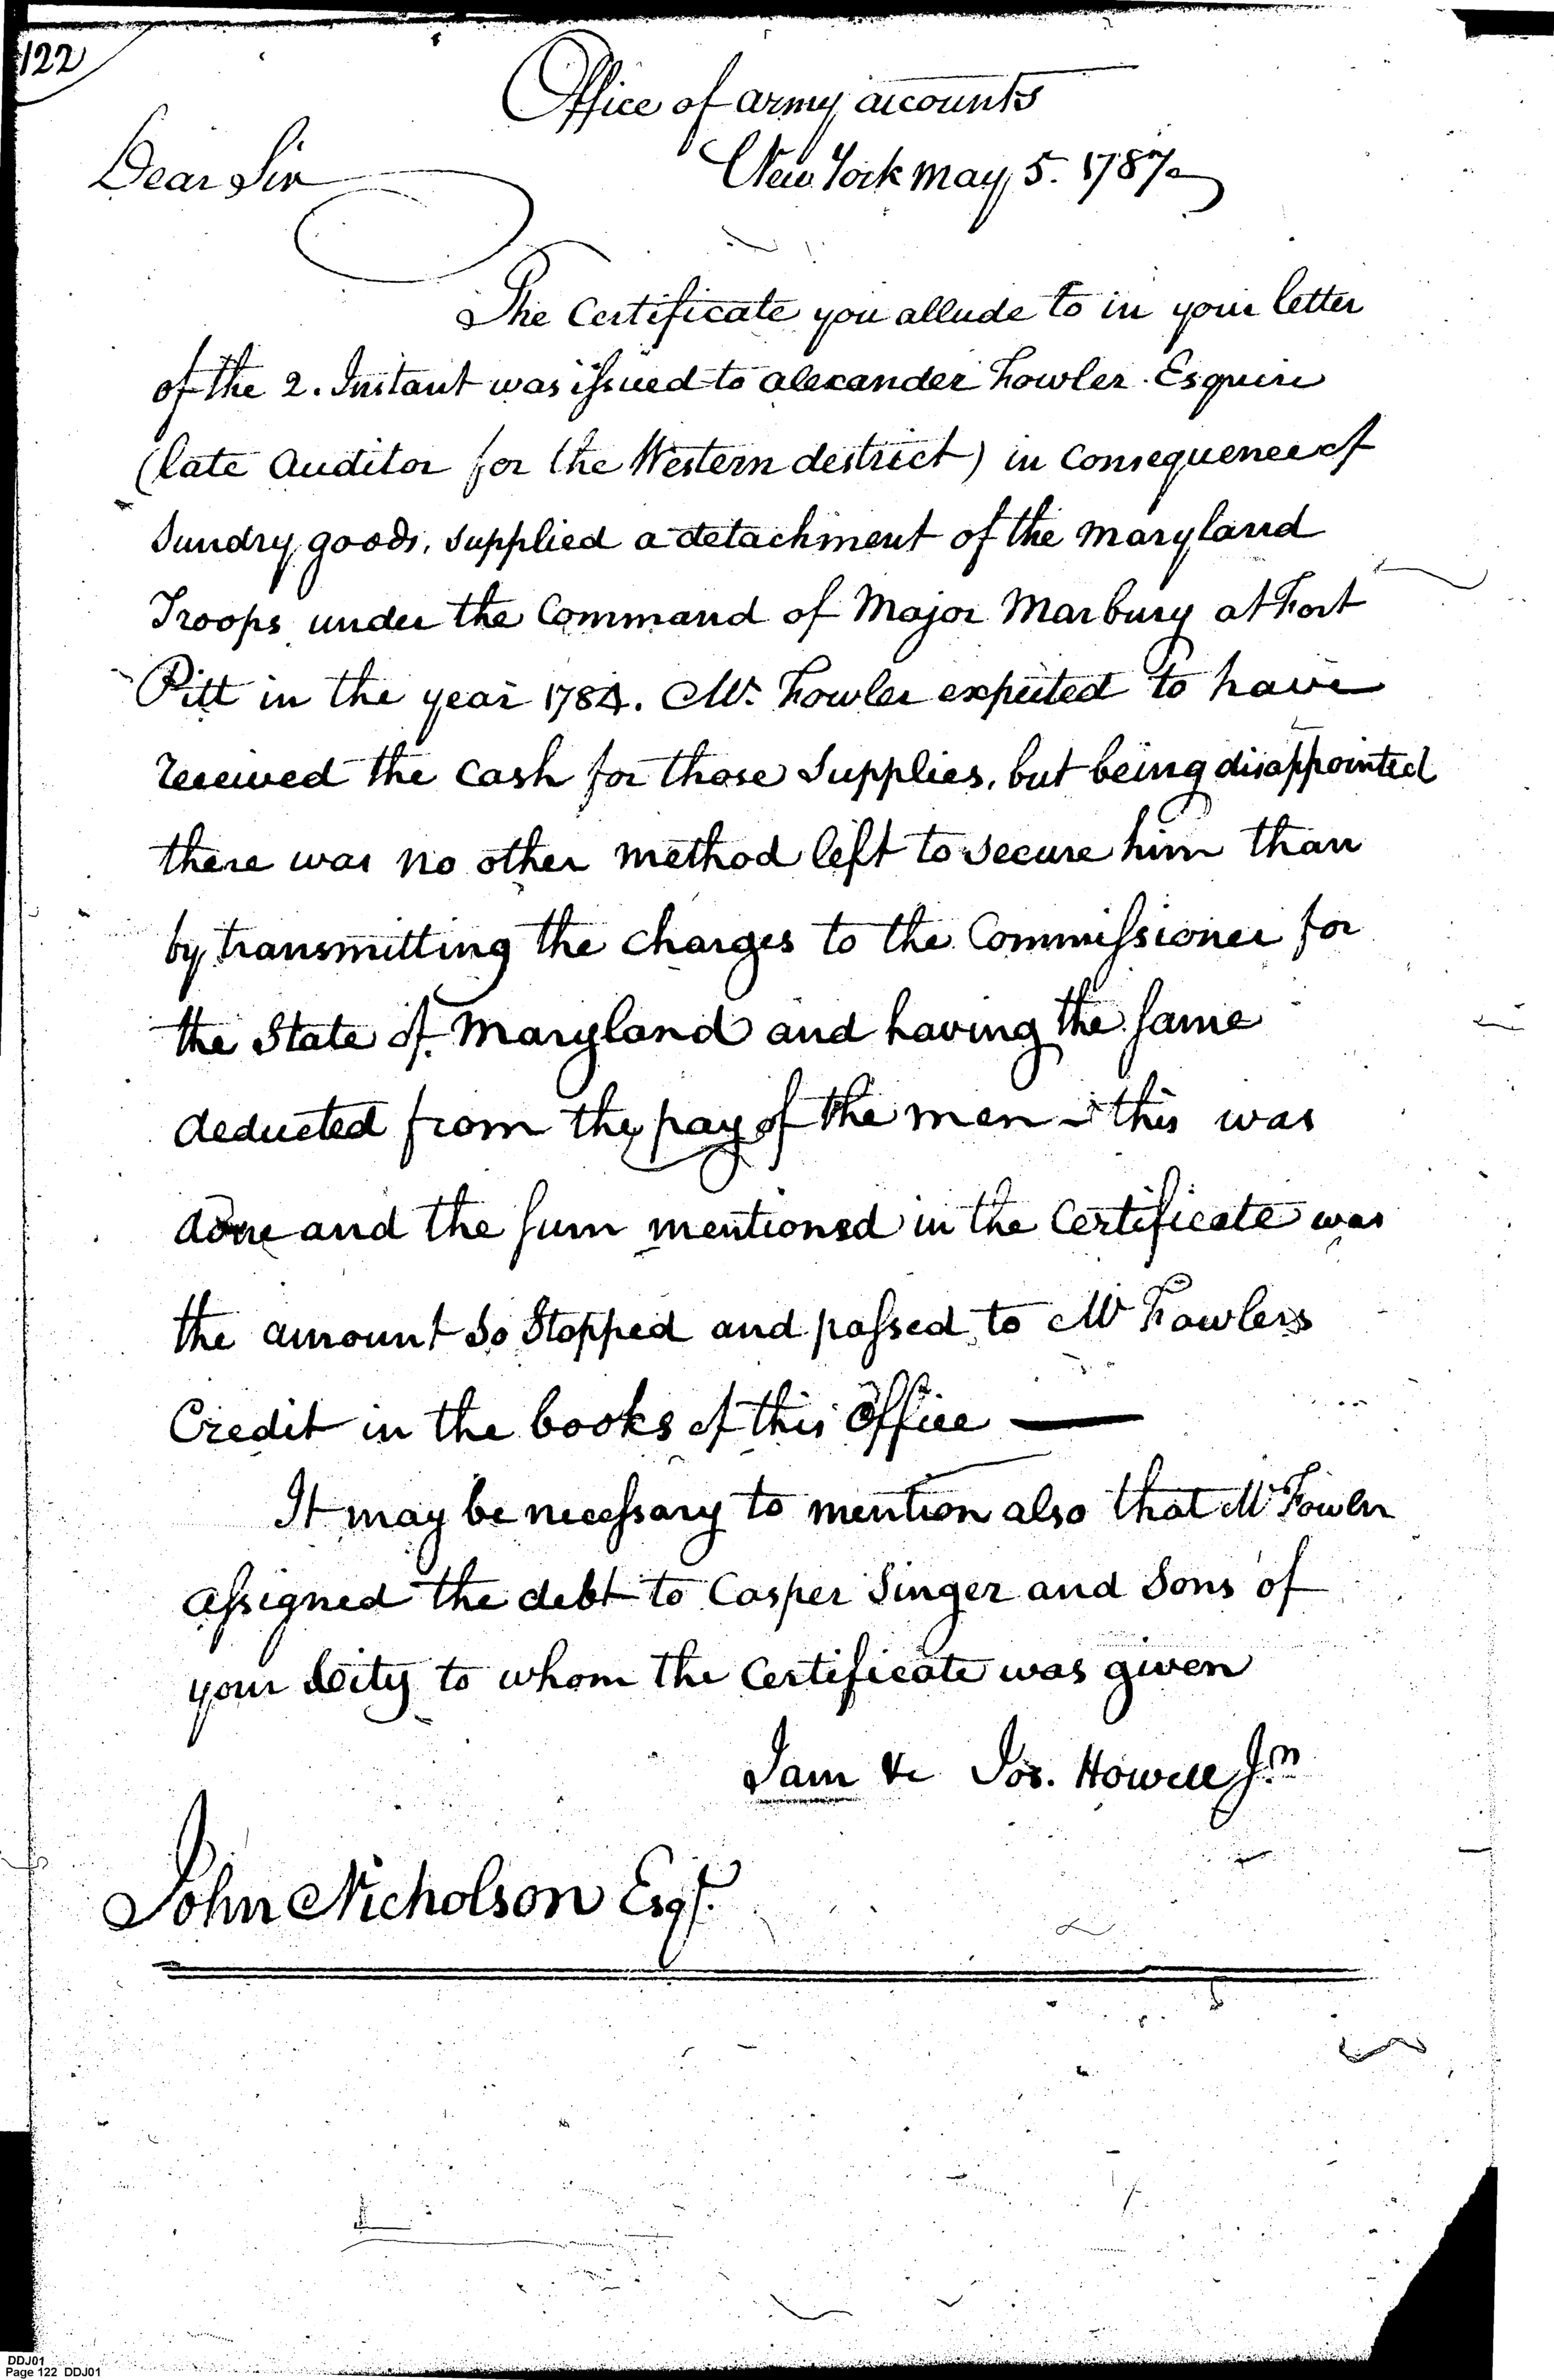 122
Office of army accounts
Dear Sir
New York may 5. 1787
The Certificate you allude to in your letter
of the 2. Instant was issued to alexander Fowler. Esquire
(late Auditor for the Western destrict) in Consequence of
Sundry goods, supplied a detachment of the Maryland
Troops under the Command of Major Marbury at Fort
Pitt in the year 1784. Mr. Fowler expected to have
received the Cash for those Supplies, but being disappointed
there was no other method left to secure him than
by transmitting the charges to the Commissioner for
the State of Maryland and having the same
deducted from the pay of the men - this was
done and the sum mentioned in the Certificate was
the amount so Stopped and passed to Mr Fowlers
Credit in the books of this Office —
It may be necessary to mention also that Mr Fowler
assigned the debt to Casper Singer and Sons of
your City to whom the Certificate was given
I am &c Jos. Howell Jn
John Nicholson Esqr.
DDJ01
Page 122 DDJ01